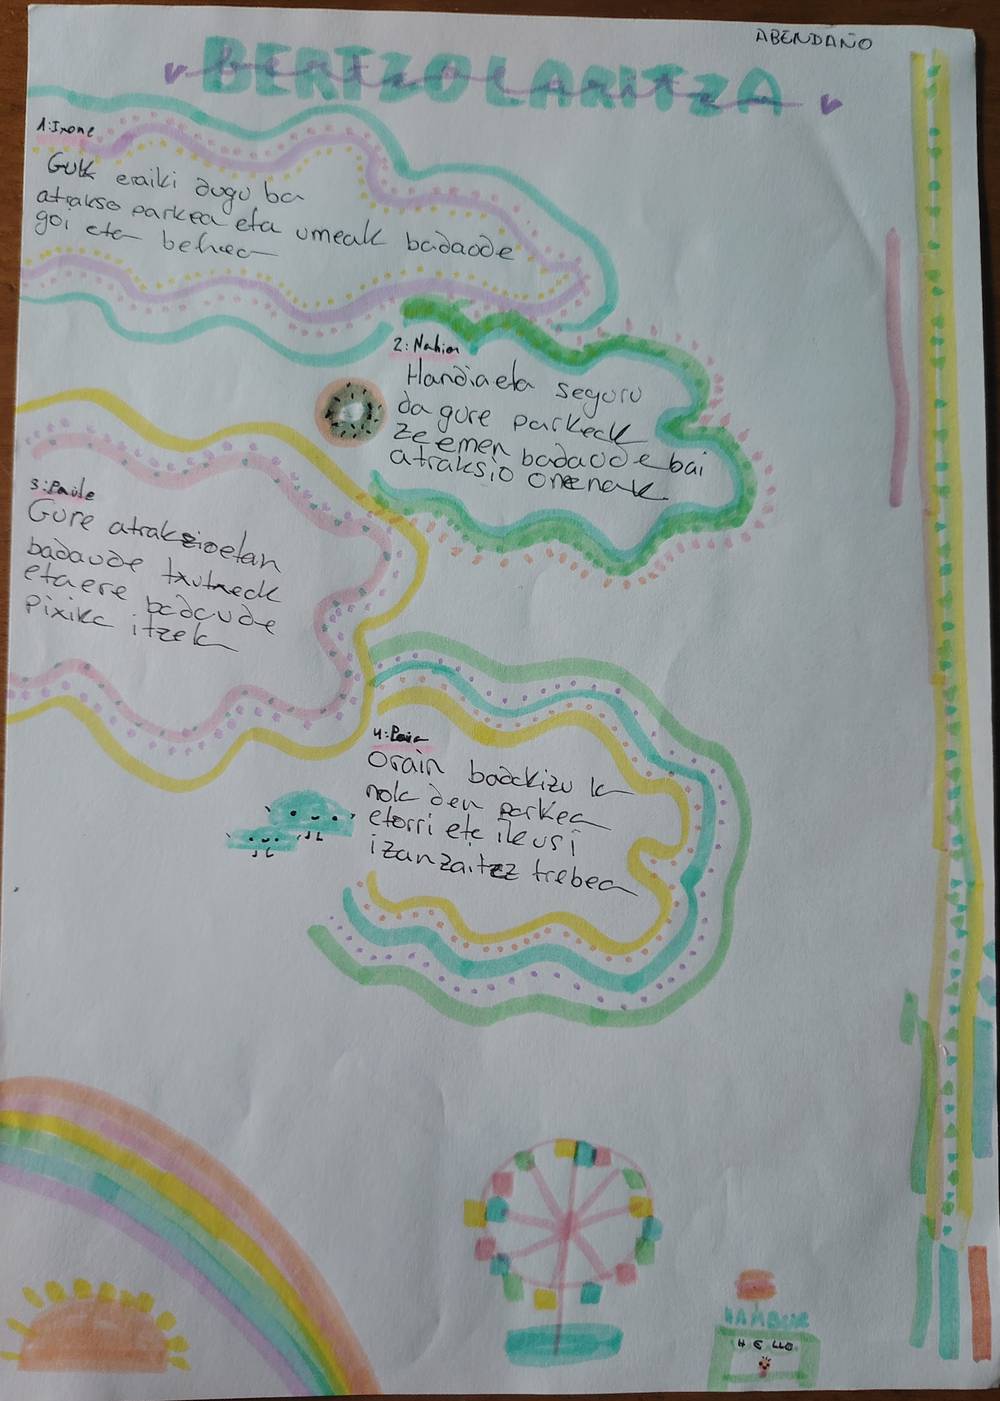 ABENDAÑO
BERTZOLARITZA
1: Irone
Guk eraiki dugu ba
atrakso parkea eta umeak badaode
goi eta behea
2: Nahia
Handia eta seguru
da gure parkeak
ze emen badaode bai
atraksio onenak
3: Paule
Gure atrakzioetan
badaude txutxeak
eta ere badaude
Pixika itzek
Orain badakizu
nola den parkea
etorri eta ikusi
izan zaitez trebea
HAMBUR
HELLO